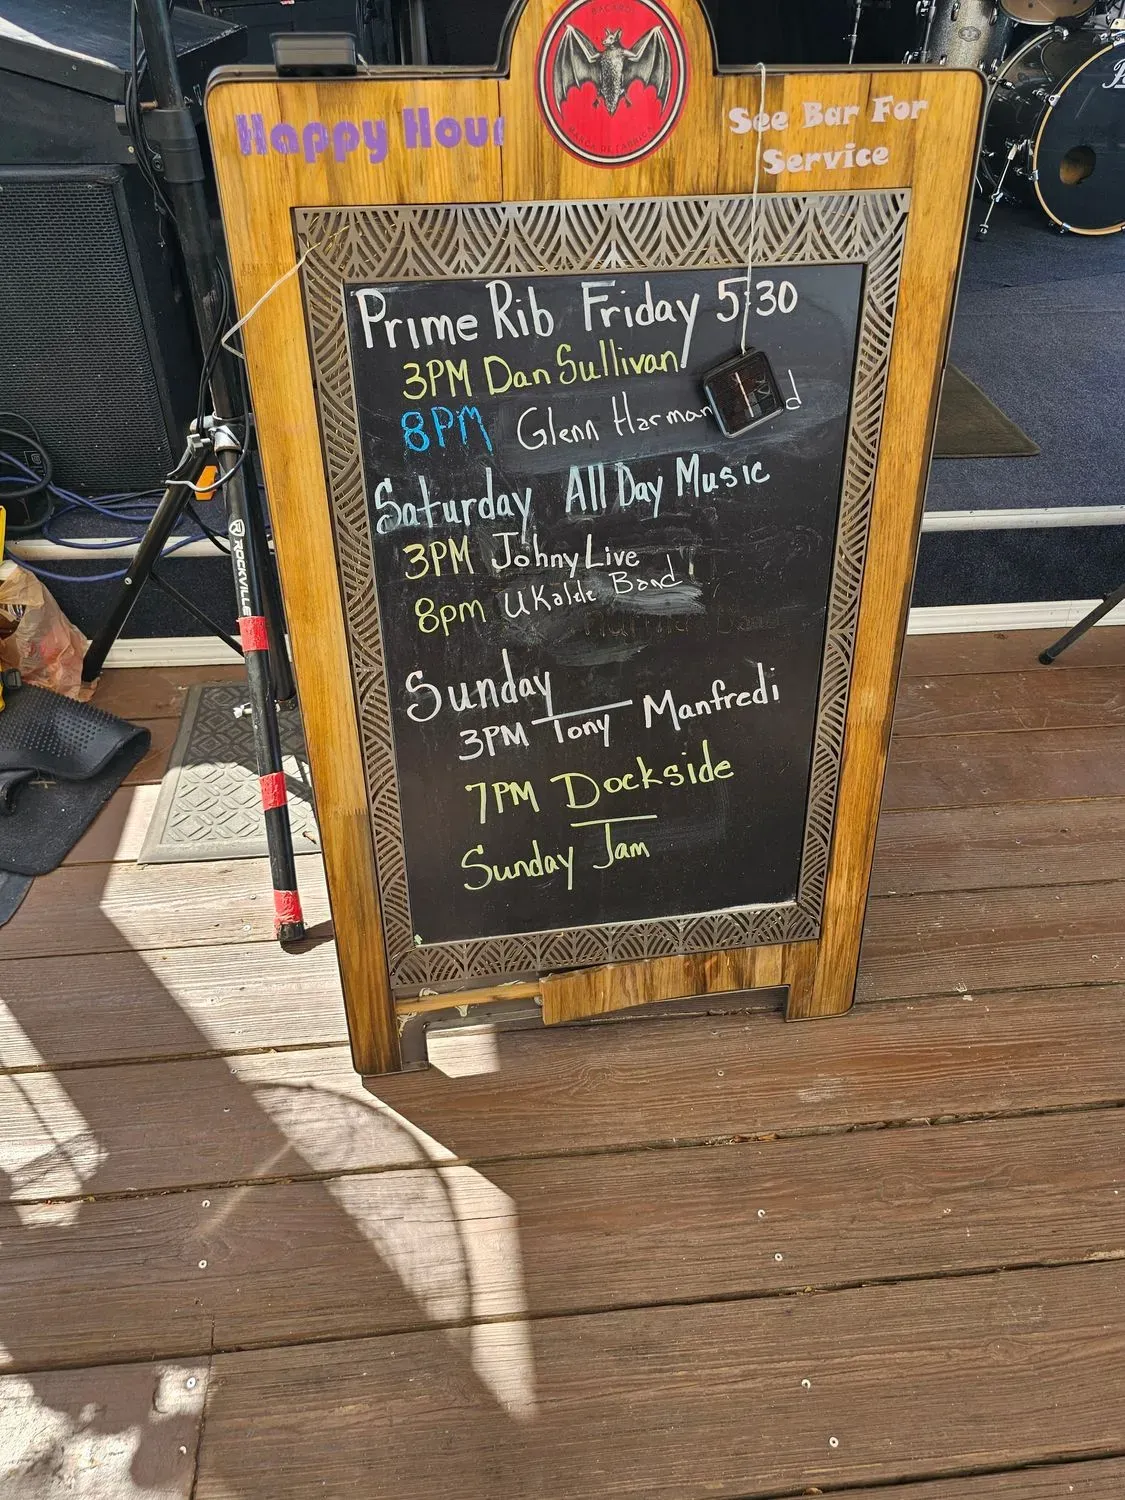 BACARDI
Happy Hour
See Bar For
Service
Prime Rib Friday 5:30
3PM Dan Sullivan
8PM Glenn Harman
Saturday All Day Music
3PM Johny Live
8pm Ukalele Band
Sunday
3PM Tony Manfredi
7PM Dockside
Sunday Jam
ROCKVILLE